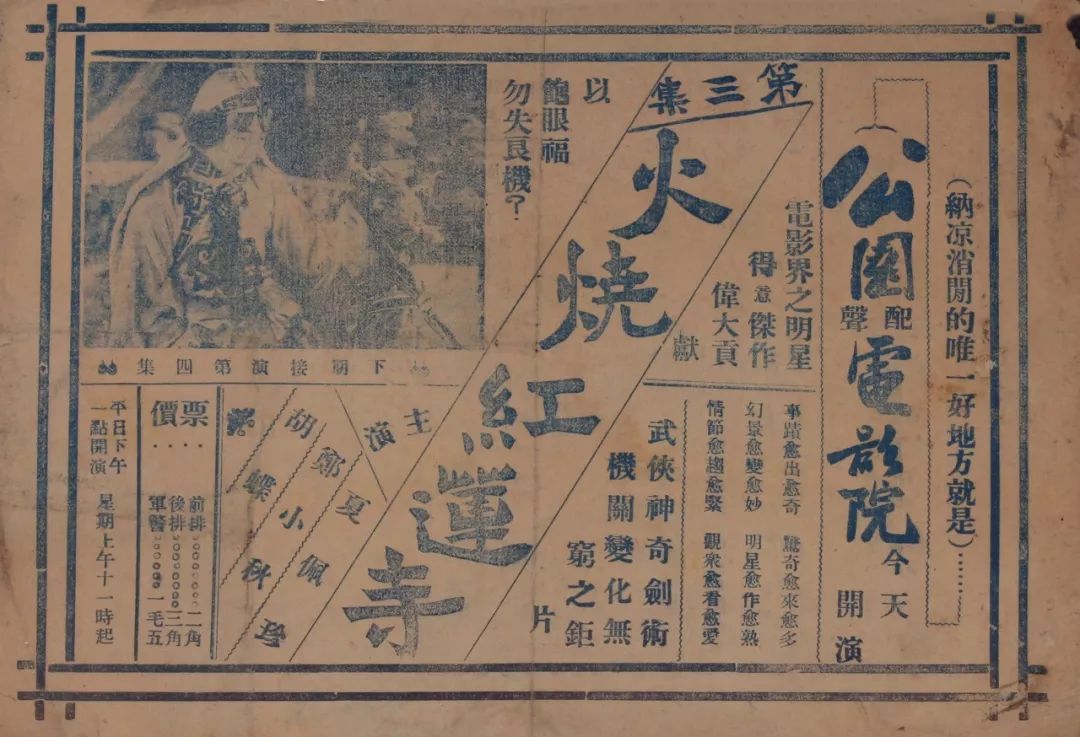 （納凉消閒的唯一好地方就是）……
公園電影院
配聲
今天
開演
電影界之明星
得意傑作
偉大貢
獻
事蹟愈出愈奇　驚奇愈來愈多
幻景愈變愈妙　明星愈作愈熟
情節愈趨愈緊　觀衆愈看愈愛
武俠神奇劍術
機關變化無
窮之鉅
片
第三集
火燒紅蓮寺
以
飽眼福
勿失良機？
下期接演第四集
主演
夏佩
鄭小秋
胡蝶
票價
前排………二角
後排………三角
軍警………一毛五
平日下午
一點開演
星期上午十一時起